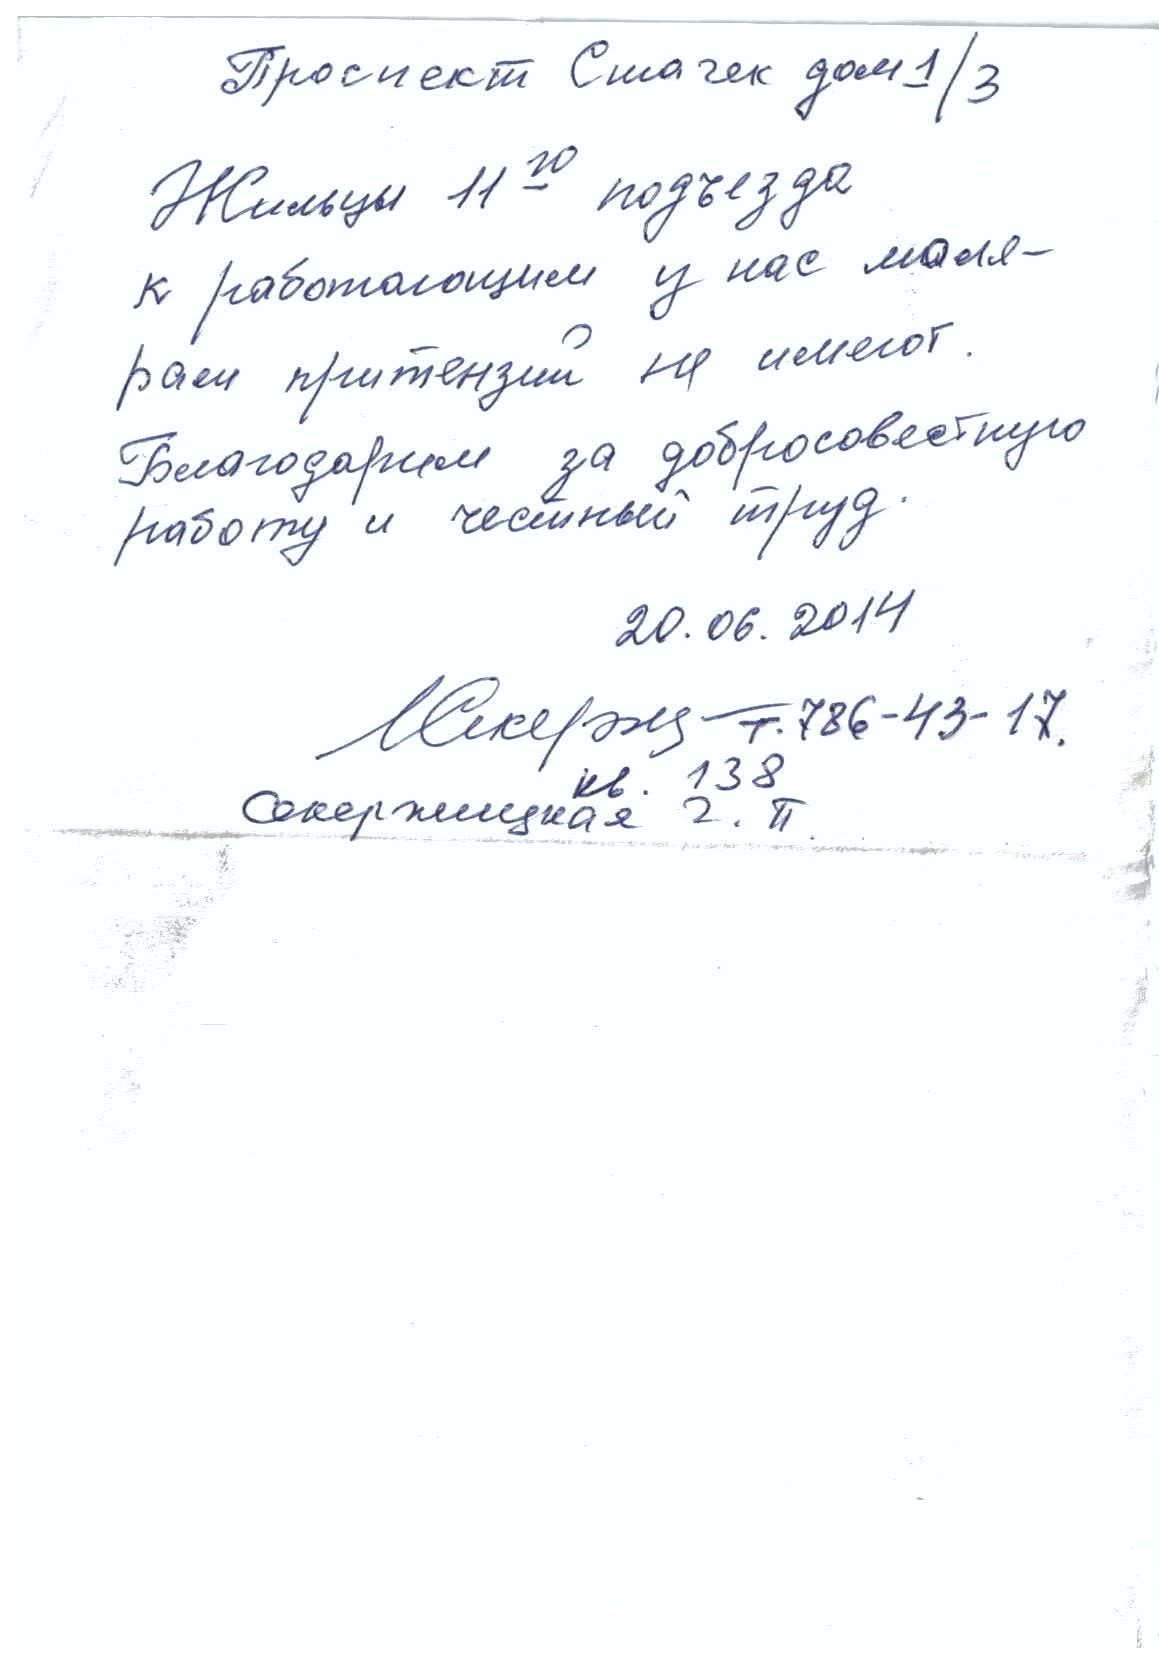 Проспект Стачек дом 1/3
Жильцы 11го подъезда
к работающим у нас маля-
рам притензий не имеют.
Благодарим за добросовестную
работу и честный труд.
20.06.2014
т. 786-43-17.
кв. 138
Секержицкая Г. П.